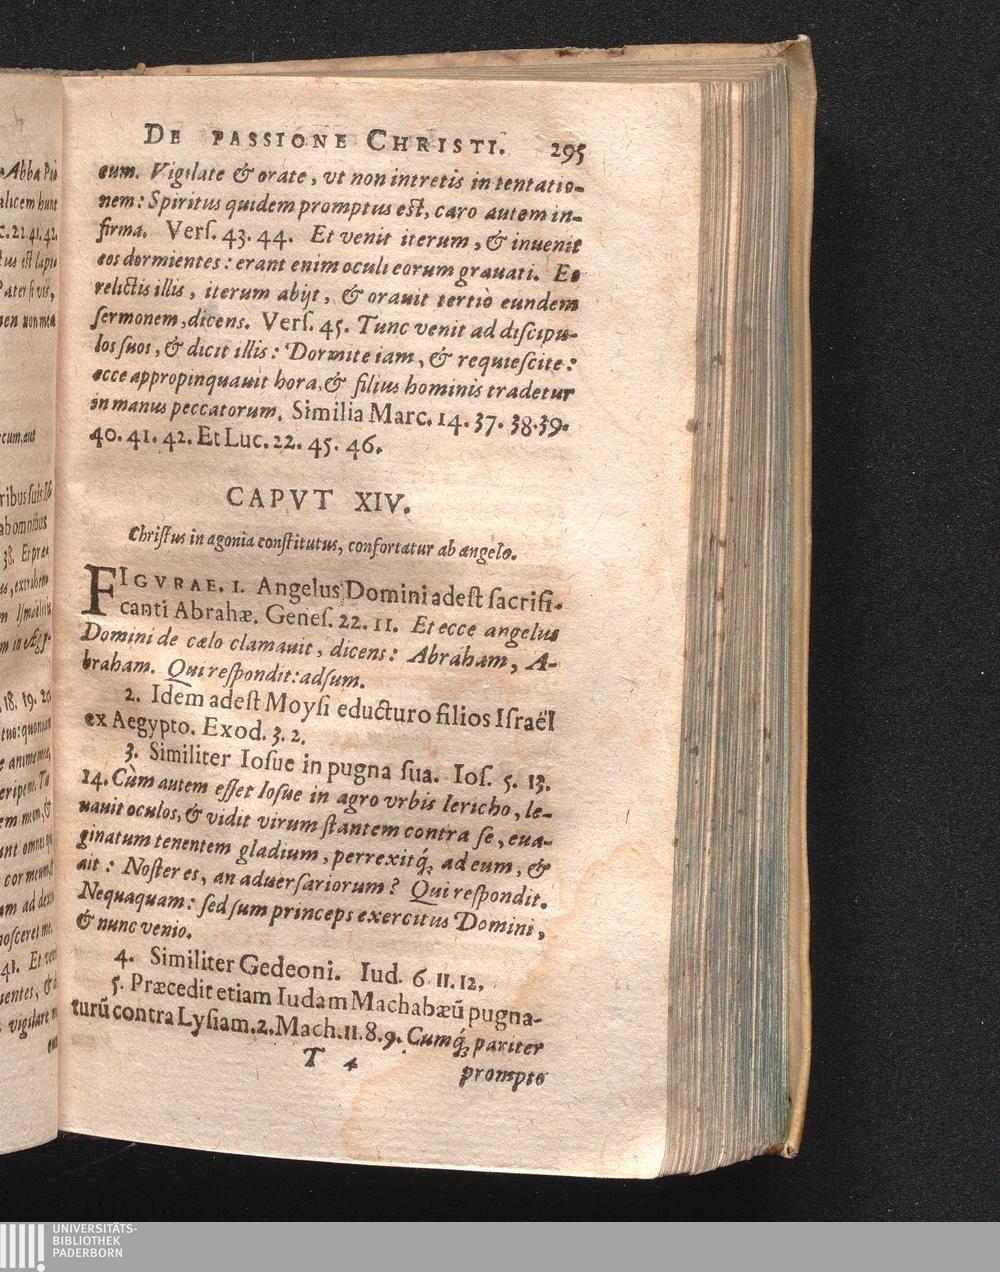 DE PASSIONE CHRISTI. 295
eum. Vigilate & orate, vt non intretis in tentatio-
nem: Spiritus quidem promptus est, caro autem in-
firma. Verſ. 43. 44. Et venit iterum, & inuenit
eos dormientes: erant enim oculi eorum grauati. Et
relictis illis, iterum abijt, & orauit tertiò eundem
ſermonem, dicens. Verſ. 45. Tunc venit ad diſcipu-
los ſuos, & dicit illis: Dormite iam, & requieſcite:
ecce appropinquauit hora, & filius hominis tradetur
in manus peccatorum. Similia Marc. 14. 37. 38. 39.
40. 41. 42. Et Luc. 22. 45. 46.
CAPVT XIV.
Chriſtus in agonia conſtitutus, confortatur ab angelo.
FIGVRAE. 1. Angelus Domini adeſt ſacrifi-
canti Abrahæ. Geneſ. 22. 11. Et ecce angelus
Domini de cælo clamauit, dicens: Abraham, A-
braham. Qui reſpondit: adſum.
2. Idem adeſt Moyſi educturo filios Iſraël
ex Aegypto. Exod. 3. 2.
3. Similiter Ioſue in pugna ſua. Ioſ. 5. 13.
14. Cùm autem eſſet Ioſue in agro vrbis Iericho, le-
uauit oculos, & vidit virum ſtantem contra ſe, eua-
ginatum tenentem gladium, perrexitq́; ad eum, &
ait: Noſter es, an aduerſariorum? Qui reſpondit.
Nequaquam: ſed ſum princeps exercitus Domini,
& nunc venio.
4. Similiter Gedeoni. Iud. 6 11. 12.
5. Præcedit etiam Iudam Machabæū pugna-
turū contra Lyſiam. 2. Mach. 11. 8. 9. Cumq́; pariter
T 4
prompto
UNIVERSITÄTS-
BIBLIOTHEK
PADERBORN